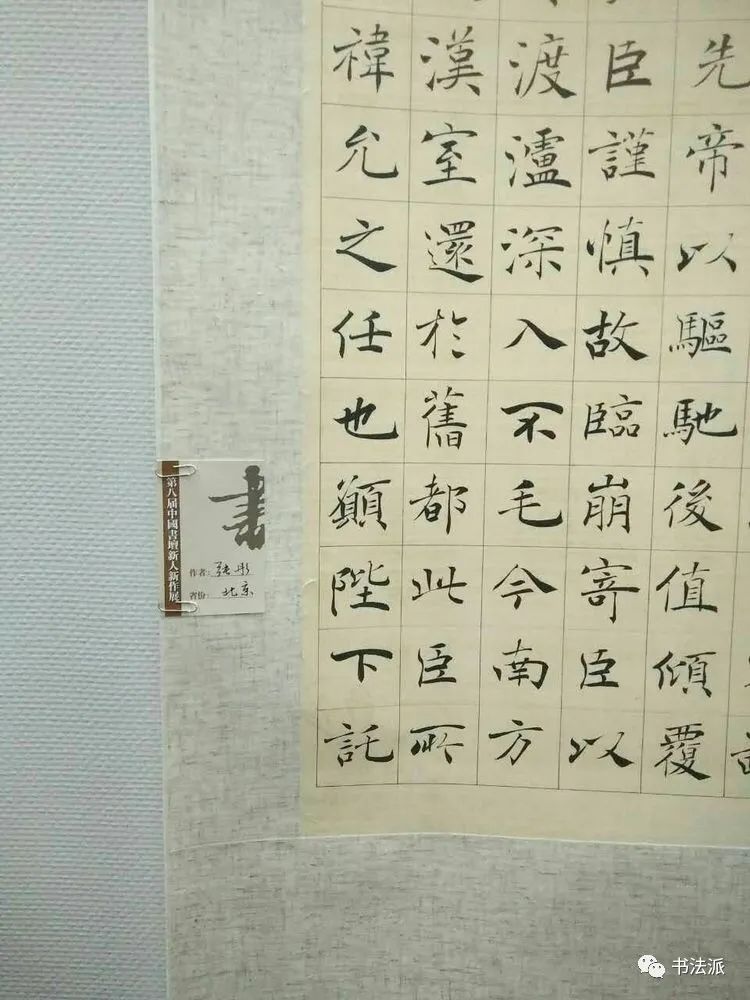 先帝以驅馳後值傾覆
臣謹慎故臨崩寄臣以
渡瀘深入不毛今南方
漢室還於舊都此臣所
禕允之任也願陛下託
第八届中國書壇新人新作展
書
作者：張彤
省份：北京
书法派